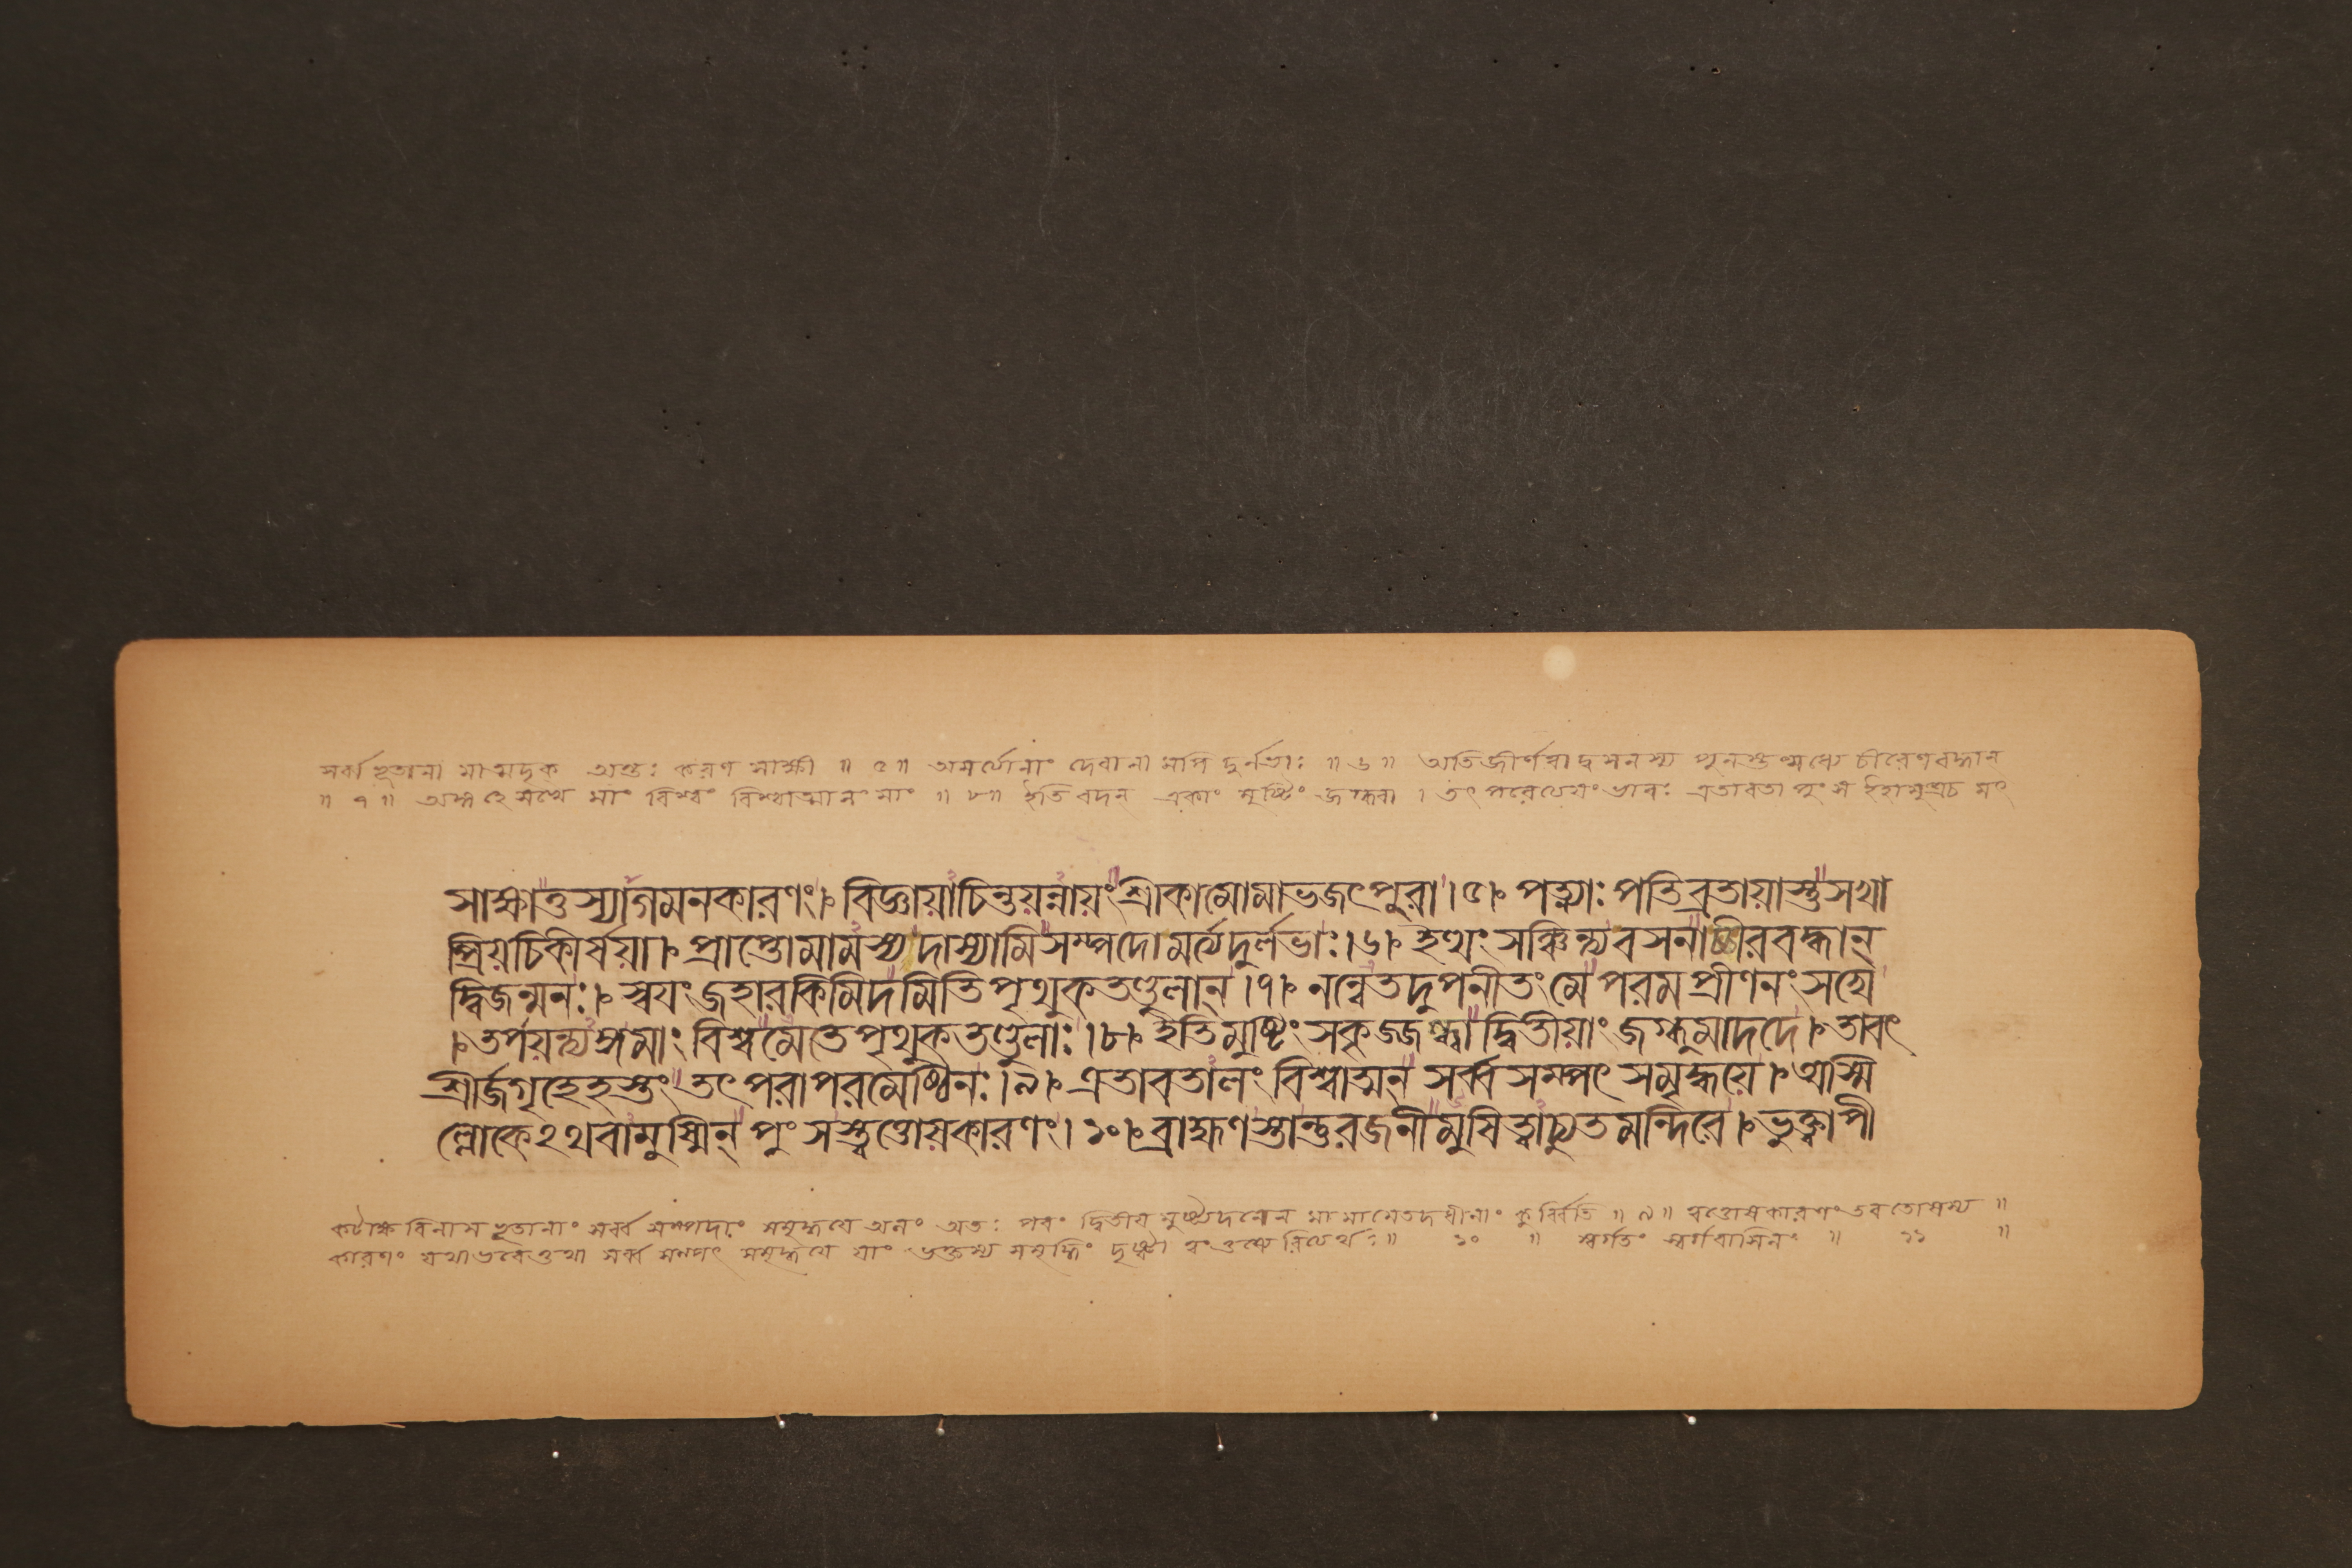 সর্ব্বভূতানামাত্মদৃক্ অন্তঃ করণ সাক্ষী ॥ ৫॥ অমর্ত্যোনাং দেবানা মপি দুর্লভাঃ ॥ ৬॥ অতিজীর্ণত্বাদ্বসনস্য পুনস্তন্মধ্যে চীরেণবদ্ধান
॥ ৭॥ অঙ্গ হে সখে মাং বিশ্বং বিশ্বাত্মানং মাং ॥ ৮॥ ইতি বদন্ একাং মুষ্টিং জগ্ধ্বা । তৎ পরেত্যেয়ংভাবঃ এতাবতা পুংস ইহামুত্রচ
সাক্ষাত্তস্যাগমনকারণং। বিজ্ঞায়াচিন্তয়ন্নায়ং শ্রীকামোমাভজৎপুরা।৫। পত্ন্যাঃ পতিব্রতায়াস্তুসখা
প্রিয়চিকীর্ষয়া। প্রাপ্তোমামস্য দাস্যামিসম্পদোমর্ত্যদুর্লভাঃ।৬। ইত্থং সঞ্চিন্ত্যবসনাচ্চীরবদ্ধান্
দ্বিজন্মনঃ। স্বয়ং জহারকিমিদমিতিপৃথুকতণ্ডুলান্।৭। নন্বেতদুপনীতংমে পরমপ্রীণনং সখে
।তর্পয়ন্ত্যঙ্গমাং বিশ্বমেতেপৃথুকতণ্ডুলাঃ।৮। ইতিমুষ্টিং সকৃজ্জগ্ধ্বা দ্বিতীয়াং জগ্ধুমাদদে। তাবৎ
শ্রীর্জগৃহেহস্তং তৎ পরাপরমেষ্ঠিনঃ।৯। এতাবতালং বিশ্বাত্মন্ সর্ব্বসম্পৎ সমৃদ্ধয়ে। অস্মি
ল্লোকেঽথবামুষ্মিন্ পুংসস্ত্বত্তোয়কারণং।১০।ব্রাহ্মণস্তান্তুরজনীমুষিত্বাচ্যুতমন্দিরে। ভুক্ত্বাপী
কটাক্ষ বিলাস ভূতানাং সর্ব্ব সম্পদাং সমৃদ্ধয়ে অলং অতঃ পরং দ্বিতীয় মুষ্ট্যদনেন মা মামেতদধীনাং কুর্ব্বিতি ॥ ৯॥ ত্বত্তোষকারণং ভবতোষস্য ॥
কারণং যথাভবেত্তথা সর্ব্ব সম্পৎ সমৃদ্ধয়ে যাং ভক্তস্য সমৃদ্ধিং দৃষ্ট্বা ত্বং তুষ্যেরিত্যর্থঃ॥ ১০ ॥ স্বর্গতং স্বর্গবাসিনং ॥ ১১ ॥